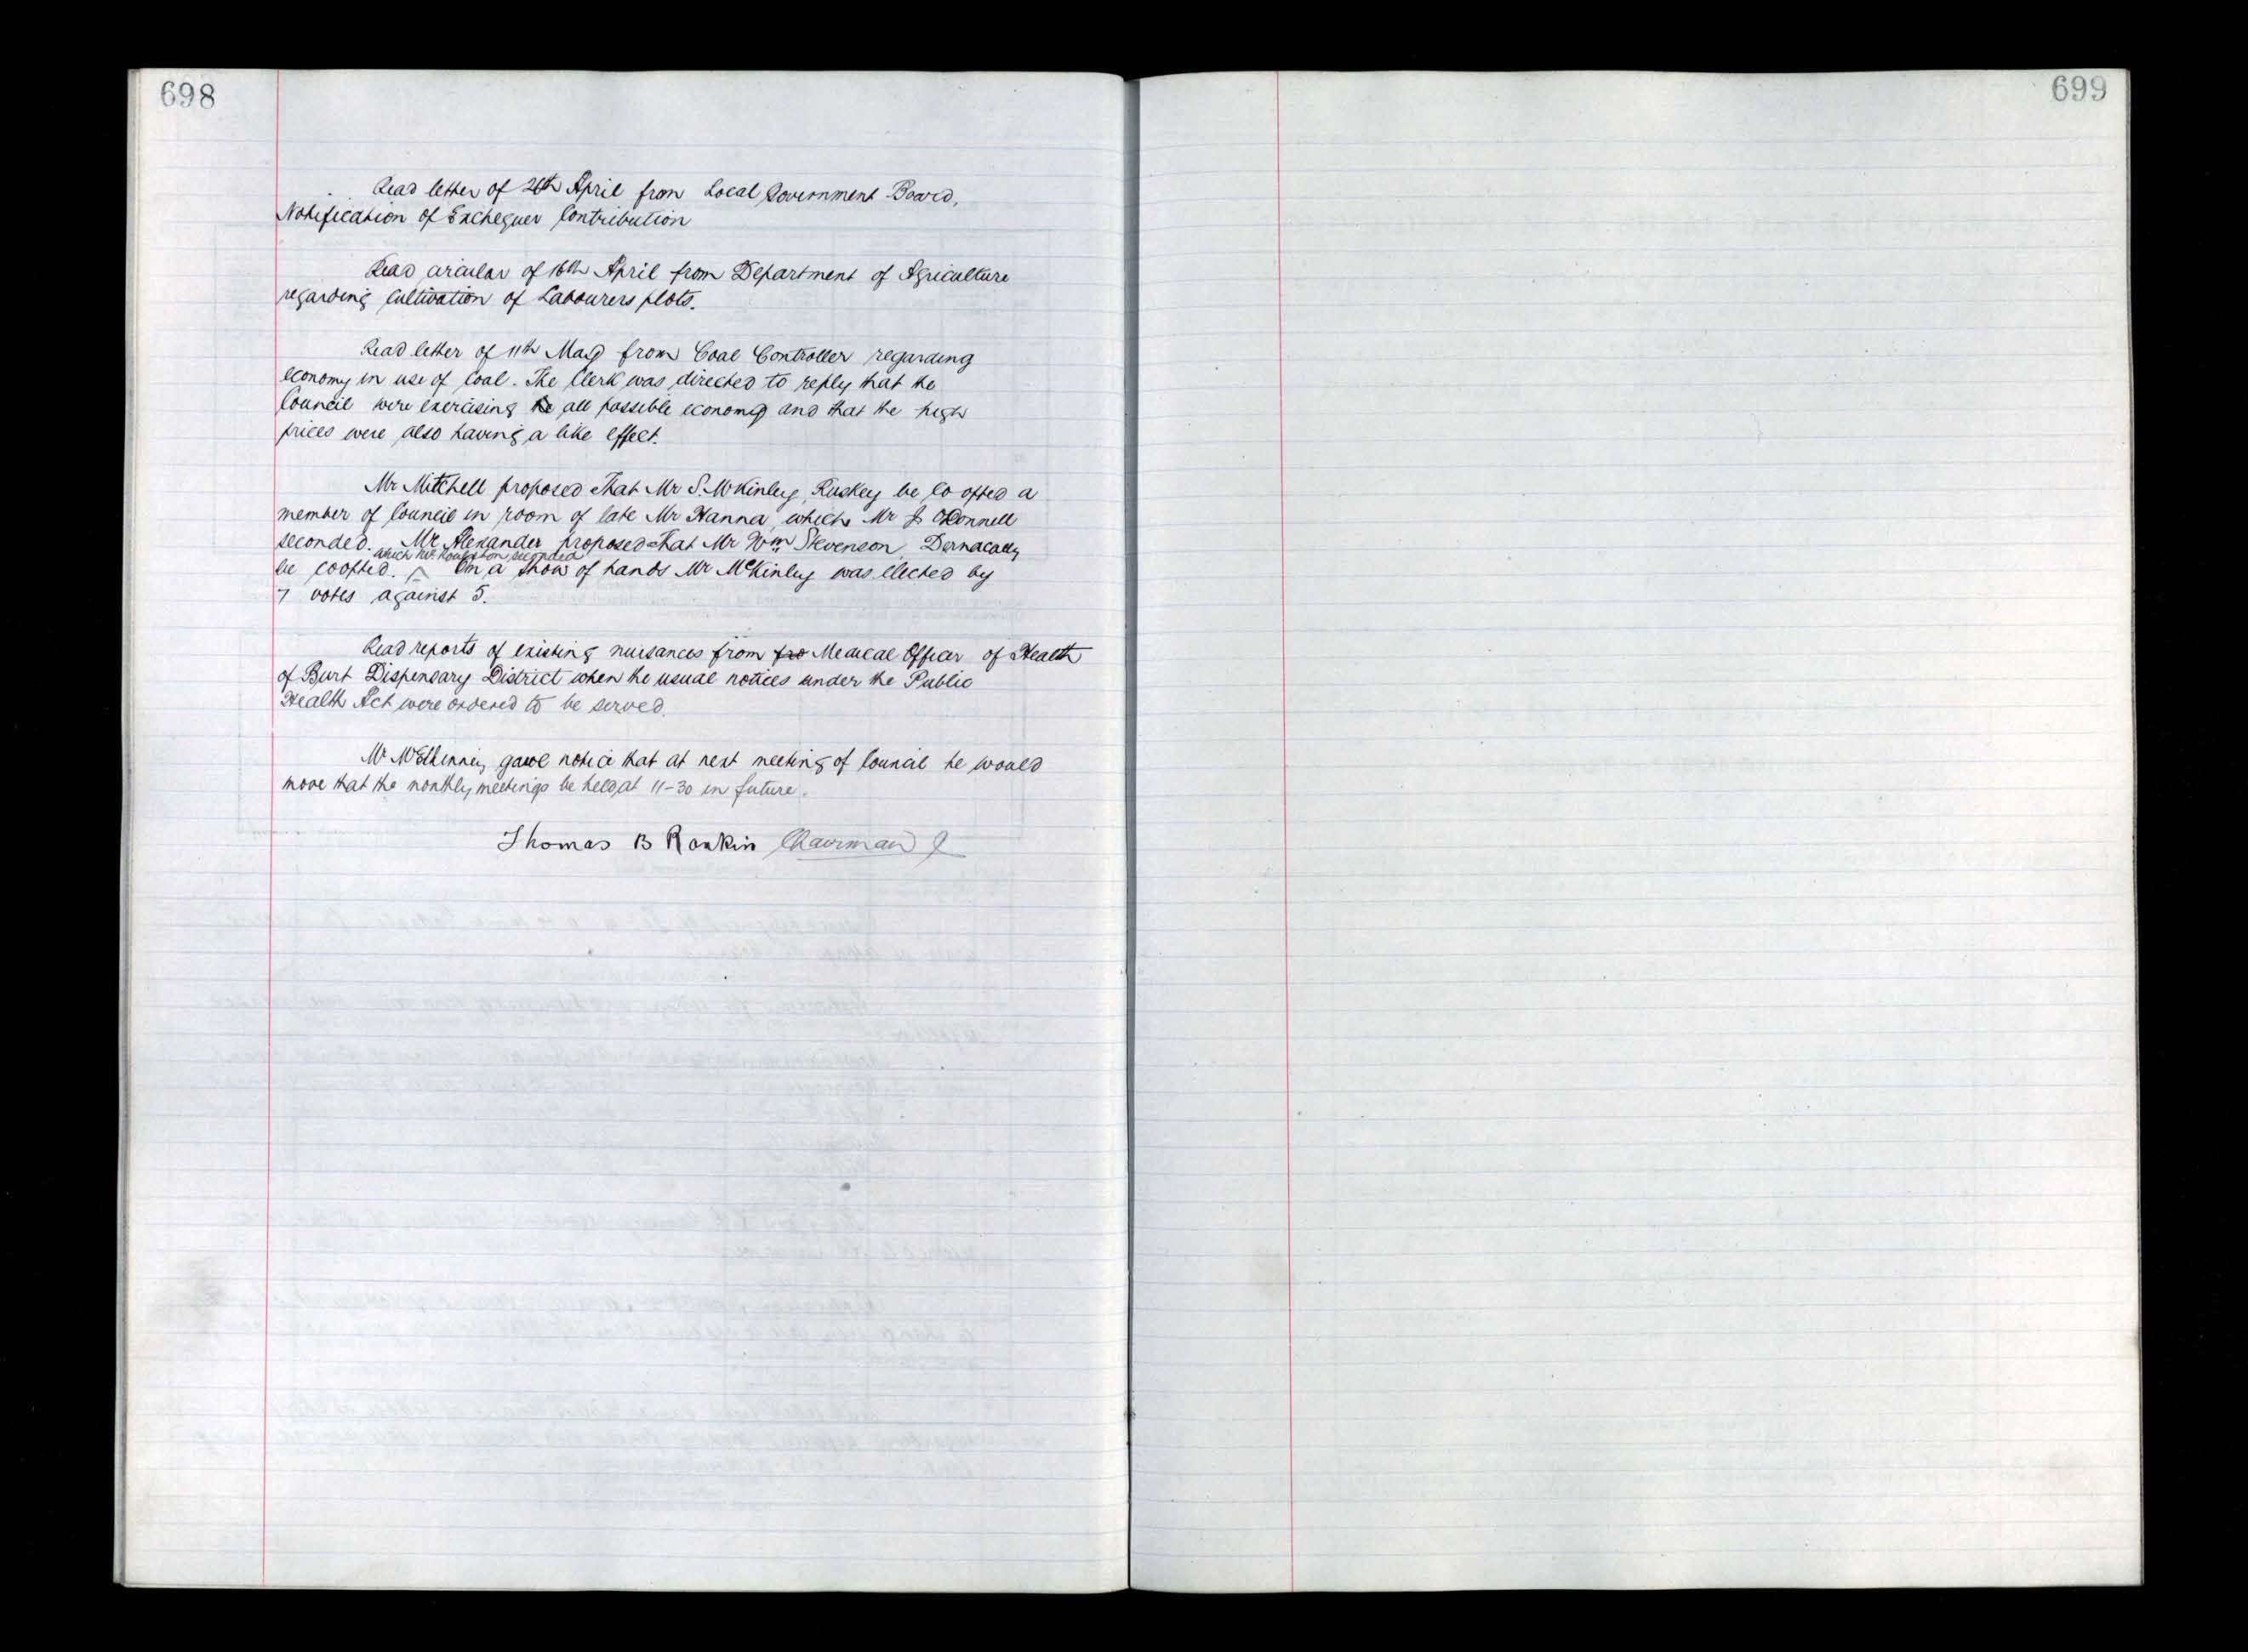 698
Read letter of 26th April from Local Government Board,
Notification of Exchequer Contribution
Read circular of 16th April from Department of Agriculture
regarding Cultivation of Labourers plots.
Read letter of 11th May from Coal Controller regarding
economy in use of Coal. The Clerk was directed to reply that the
Council were exercising all possible economy and that the high
prices were also having a like effect.
Mr Mitchell proposed That Mr S. McKinley, Ruskey be Co opted a
member of Council in room of late Mr Hanna, which Mr J O'Donnell
seconded. Mr Alexander proposed That Mr Wm Stevenson,
which Mr Roulston seconded
be coopted. ^ On a show of hands Mr McKinley was elected by
7 votes against 5.
Read reports of existing nuisances from fro Medical Officer of Health
of Burt Dispensary District when the usual notices under the Public
Health Act were ordered to be served.
Mr McElhinney gave notice that at next meeting of Council he would
move that the monthly meetings be held at 11-30 in future.
Thomas B Rankin Chairman
699